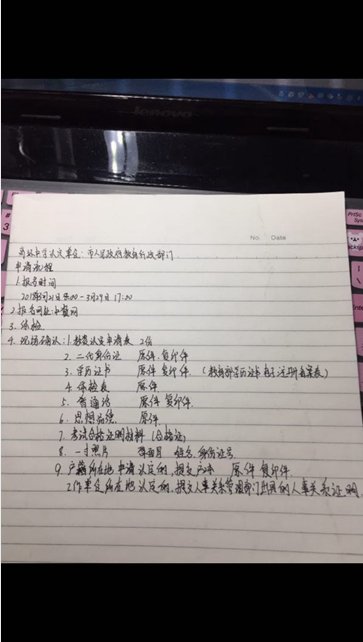 lenovo
No. Date
高级中学认定单位：市人民政府教育行政部门
申请流程
1.报名时间
3月29日 17:00
2.报名网址：中国网
3.体检
4.现场确认：1.教资认定申请表 2份
2.二代身份证 原件 复印件
3.学历证书 原件 复印件 (教育部学历证书电子注册备案表)
4.体检表 原件
5.普通话 原件 复印件
6.思想品德 原件
7.考试合格证明材料 (合格证)
8.一寸照片 背面 姓名、身份证号
9.户籍所在地申请认定的，提交户口本 原件 复印件
工作单位所在地认定的，提交人事关系管理部门出具的人事关系证明